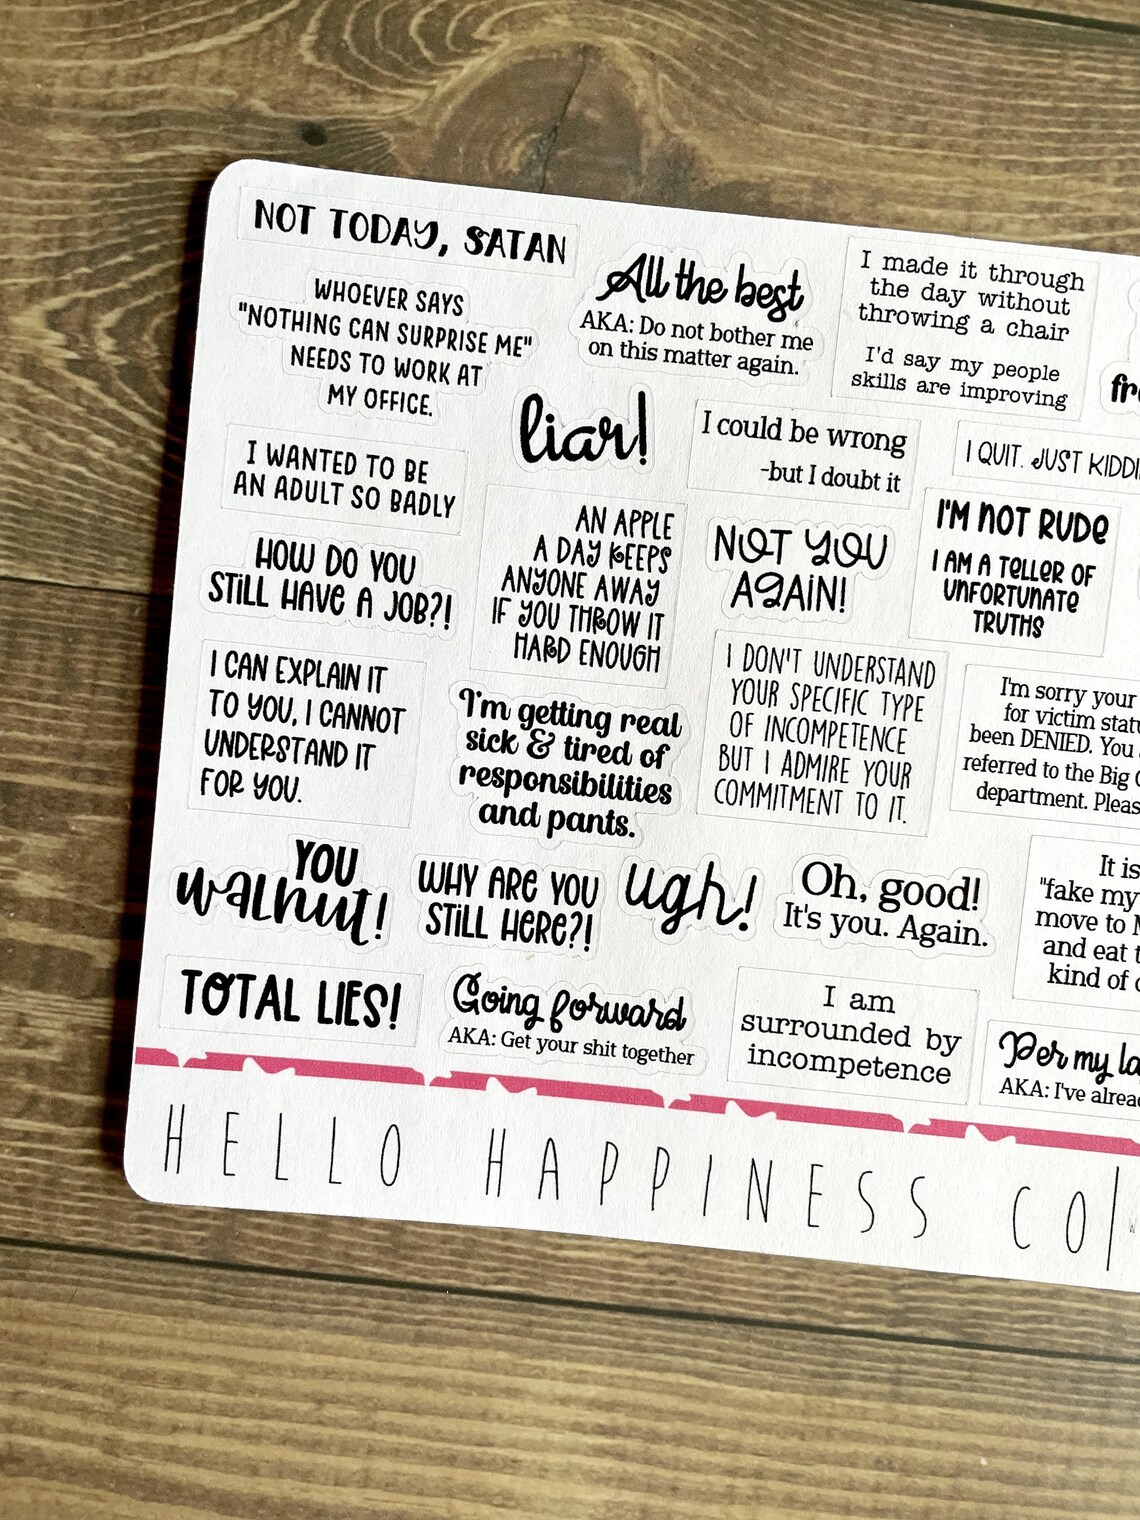 NOT TODAY, SATAN
WHOEVER SAYS
"NOTHING CAN SURPRISE ME"
NEEDS TO WORK AT
MY OFFICE.
I WANTED TO BE
AN ADULT SO BADLY
HOW DO YOU
STILL HAVE A JOB?!
I CAN EXPLAIN IT
TO YOU, I CANNOT
UNDERSTAND IT
FOR YOU.
YOU
walnut!
TOTAL LIES!
All the best
AKA: Do not bother me
on this matter again.
liar!
AN APPLE
A DAY KEEPS
ANYONE AWAY
IF YOU THROW IT
HARD ENOUGH
I'm getting real
sick & tired of
responsibilities
and pants.
WHY ARE YOU
STILL HERE?!
ugh!
Going forward
AKA: Get your shit together
I made it through
the day without
throwing a chair
I'd say my people
skills are improving
I could be wrong
-but I doubt it
NOT YOU
AGAIN!
I DON'T UNDERSTAND
YOUR SPECIFIC TYPE
OF INCOMPETENCE
BUT I ADMIRE YOUR
COMMITMENT TO IT.
Oh, good!
It's you. Again.
I am
surrounded by
incompetence
I QUIT. JUST
I'M NOT RUDE
I AM A TELLER OF
UNFORTUNATE
TRUTHS
I'm sorry your
for victim
been DENIED. You
referred to the Big
department.
It is
"fake my
move to
and eat
kind of
Per my
AKA: I've
HELLO HAPPINESS CO